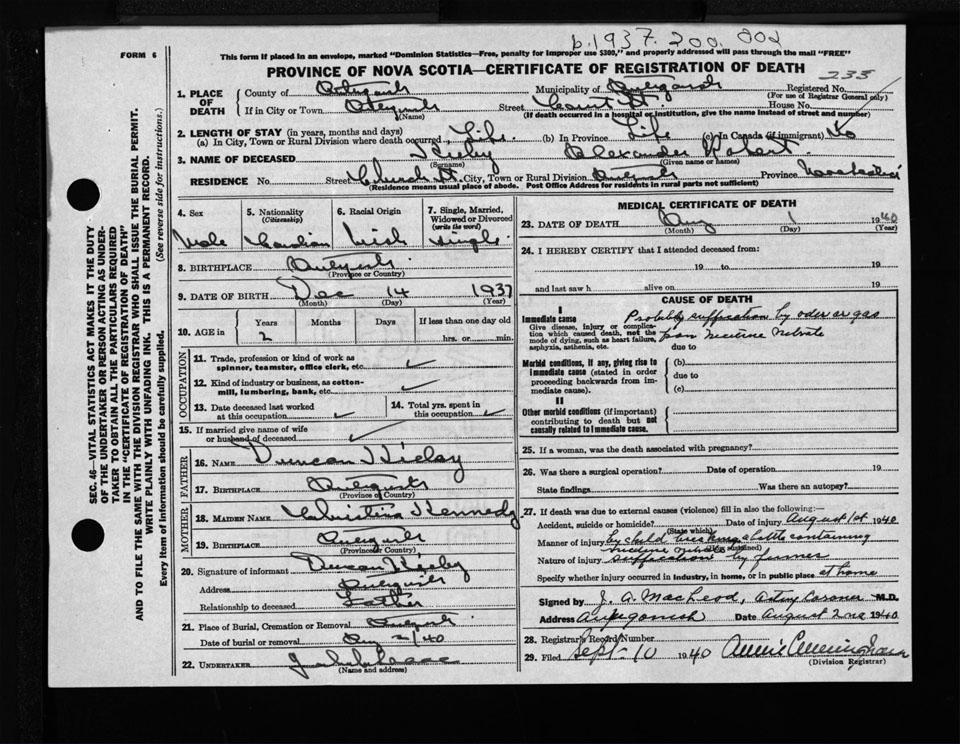 b.1937. 200. 802
FORM 6
This form if placed in an envelope, marked "Dominion Statistics—Free, penalty for improper use $300," and properly addressed will pass through the mail "FREE"
PROVINCE OF NOVA SCOTIA—CERTIFICATE OF REGISTRATION OF DEATH
233
1. PLACE OF DEATH
County of Antigonish Municipality of Antigonish Registered No.
(For use of Registrar General only)
If in City or Town Antigonish Street Court St. House No.
(Name) (If death occurred in a hospital or institution, give the name instead of street and number)
2. LENGTH OF STAY (in years, months and days)
(a) In City, Town or Rural Division where death occurred Life. (b) In Province Life (c) In Canada (if immigrant) No
3. NAME OF DECEASED Alexander Robert.
(Surname) (Given name or names)
RESIDENCE No. Street Church St. City, Town or Rural Division Antigonish Province Nova Scotia
(Residence means usual place of abode. Post Office Address for residents in rural parts not sufficient)
4. Sex
Male
5. Nationality (Citizenship)
Canadian
6. Racial Origin
Irish
7. Single, Married, Widowed or Divorced (write the word)
Single
8. BIRTHPLACE Antigonish
(Province or Country)
9. DATE OF BIRTH Dec 14 1937
(Month) (Day) (Year)
10. AGE in
Years Months Days If less than one day old
2 hrs. or min.
OCCUPATION
11. Trade, profession or kind of work as spinner, teamster, office clerk, etc. ✓
12. Kind of industry or business, as cotton-mill, lumbering, bank, etc. ✓
13. Date deceased last worked at this occupation ✓
14. Total yrs. spent in this occupation ✓
15. If married give name of wife or husband of deceased ✓
FATHER
16. NAME Duncan
17. BIRTHPLACE Antigonish
(Province or Country)
MOTHER
18. MAIDEN NAME Christina Kennedy
19. BIRTHPLACE Antigonish
(Province or Country)
20. Signature of informant Duncan
Address Antigonish
Relationship to deceased Father
21. Place of Burial, Cremation or Removal Antigonish
Date of burial or removal Aug 2/40
22. UNDERTAKER
(Name and address)
MEDICAL CERTIFICATE OF DEATH
23. DATE OF DEATH Aug 1 1940
(Month) (Day) (Year)
24. I HEREBY CERTIFY that I attended deceased from:
19 to 19
and last saw h alive on 19
CAUSE OF DEATH
Immediate cause Probably suffocation by oder or gas
Give disease, injury or complication which caused death, not the mode of dying, such as heart failure, asphyxia, asthenia, etc.
from Nitrate
due to
Morbid conditions, if any, giving rise to immediate cause (stated in order proceeding backwards from immediate cause).
(b)
due to
(c)
II
Other morbid conditions (if important) contributing to death but not causally related to immediate cause.
25. If a woman, was the death associated with pregnancy?
26. Was there a surgical operation? Date of operation 19
State findings Was there an autopsy?
27. If death was due to external causes (violence) fill in also the following:—
Accident, suicide or homicide? Date of injury August 1st 1940
(State which)
Manner of injury by child breaking a bottle containing
Nitrate (How sustained)
Nature of injury Suffocation by fumes
Specify whether injury occurred in industry, in home, or in public place at home
Signed by J. A. MacLeod, Acting Coroner M.D.
Address Antigonish Date August 2nd 1940
28. Registrar's Record Number
29. Filed Sept 10 1940 Annie Cunningham
(Division Registrar)
SEC. 46—VITAL STATISTICS ACT MAKES IT THE DUTY
OF THE UNDERTAKER OR PERSON ACTING AS UNDER-
TAKER TO OBTAIN ALL THE PARTICULARS REQUIRED
IN THE "CERTIFICATE OF REGISTRATION OF DEATH"
AND TO FILE THE SAME WITH THE DIVISION REGISTRAR WHO SHALL ISSUE THE BURIAL PERMIT.
WRITE PLAINLY WITH UNFADING INK. THIS IS A PERMANENT RECORD.
Every item of information should be carefully supplied. (See reverse side for instructions.)